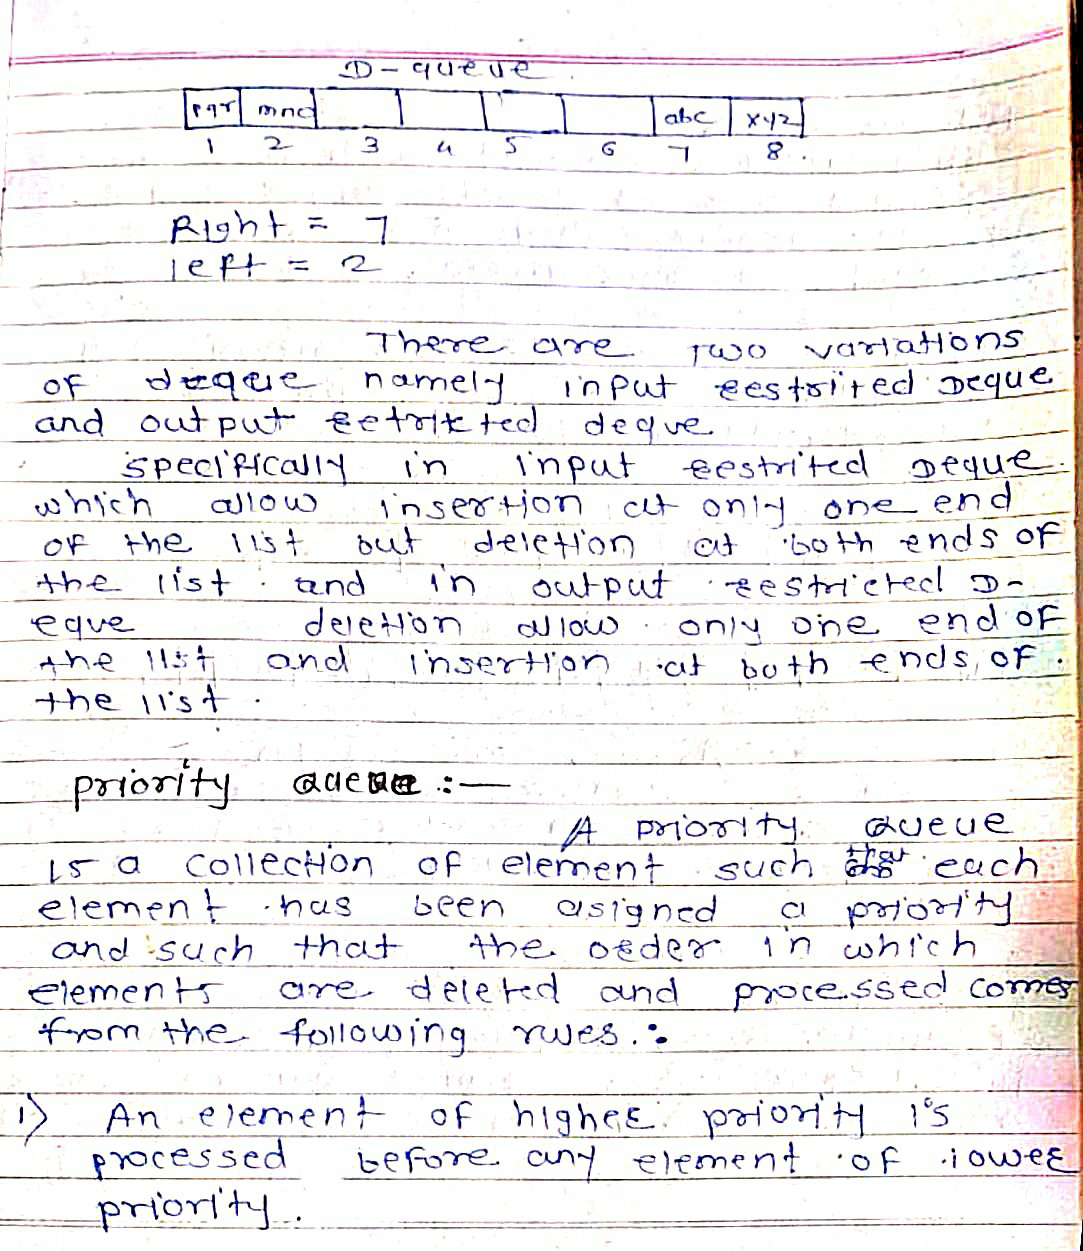 D-queue
pqr mnd abc xyz
1 2 3 4 5 6 7 8
Right = 7
left = 2
There are two variations
of deqeue namely input restrited Deque
and output retrikted deque
specifically in input restrited Deque.
which allow insertion at only one end
of the list but deletion at both ends of
the list. and in output restricted D-
eque deletion allow only one end of
the list and insertion at both ends of
the list.
priority queue :-
A priority queue
is a collection of element such that each
element has been asigned a priority
and such that the order in which
elements are deleted and processed comes
from the following rules.:
1) An element of higher priority is
processed before any element of lower
priority.